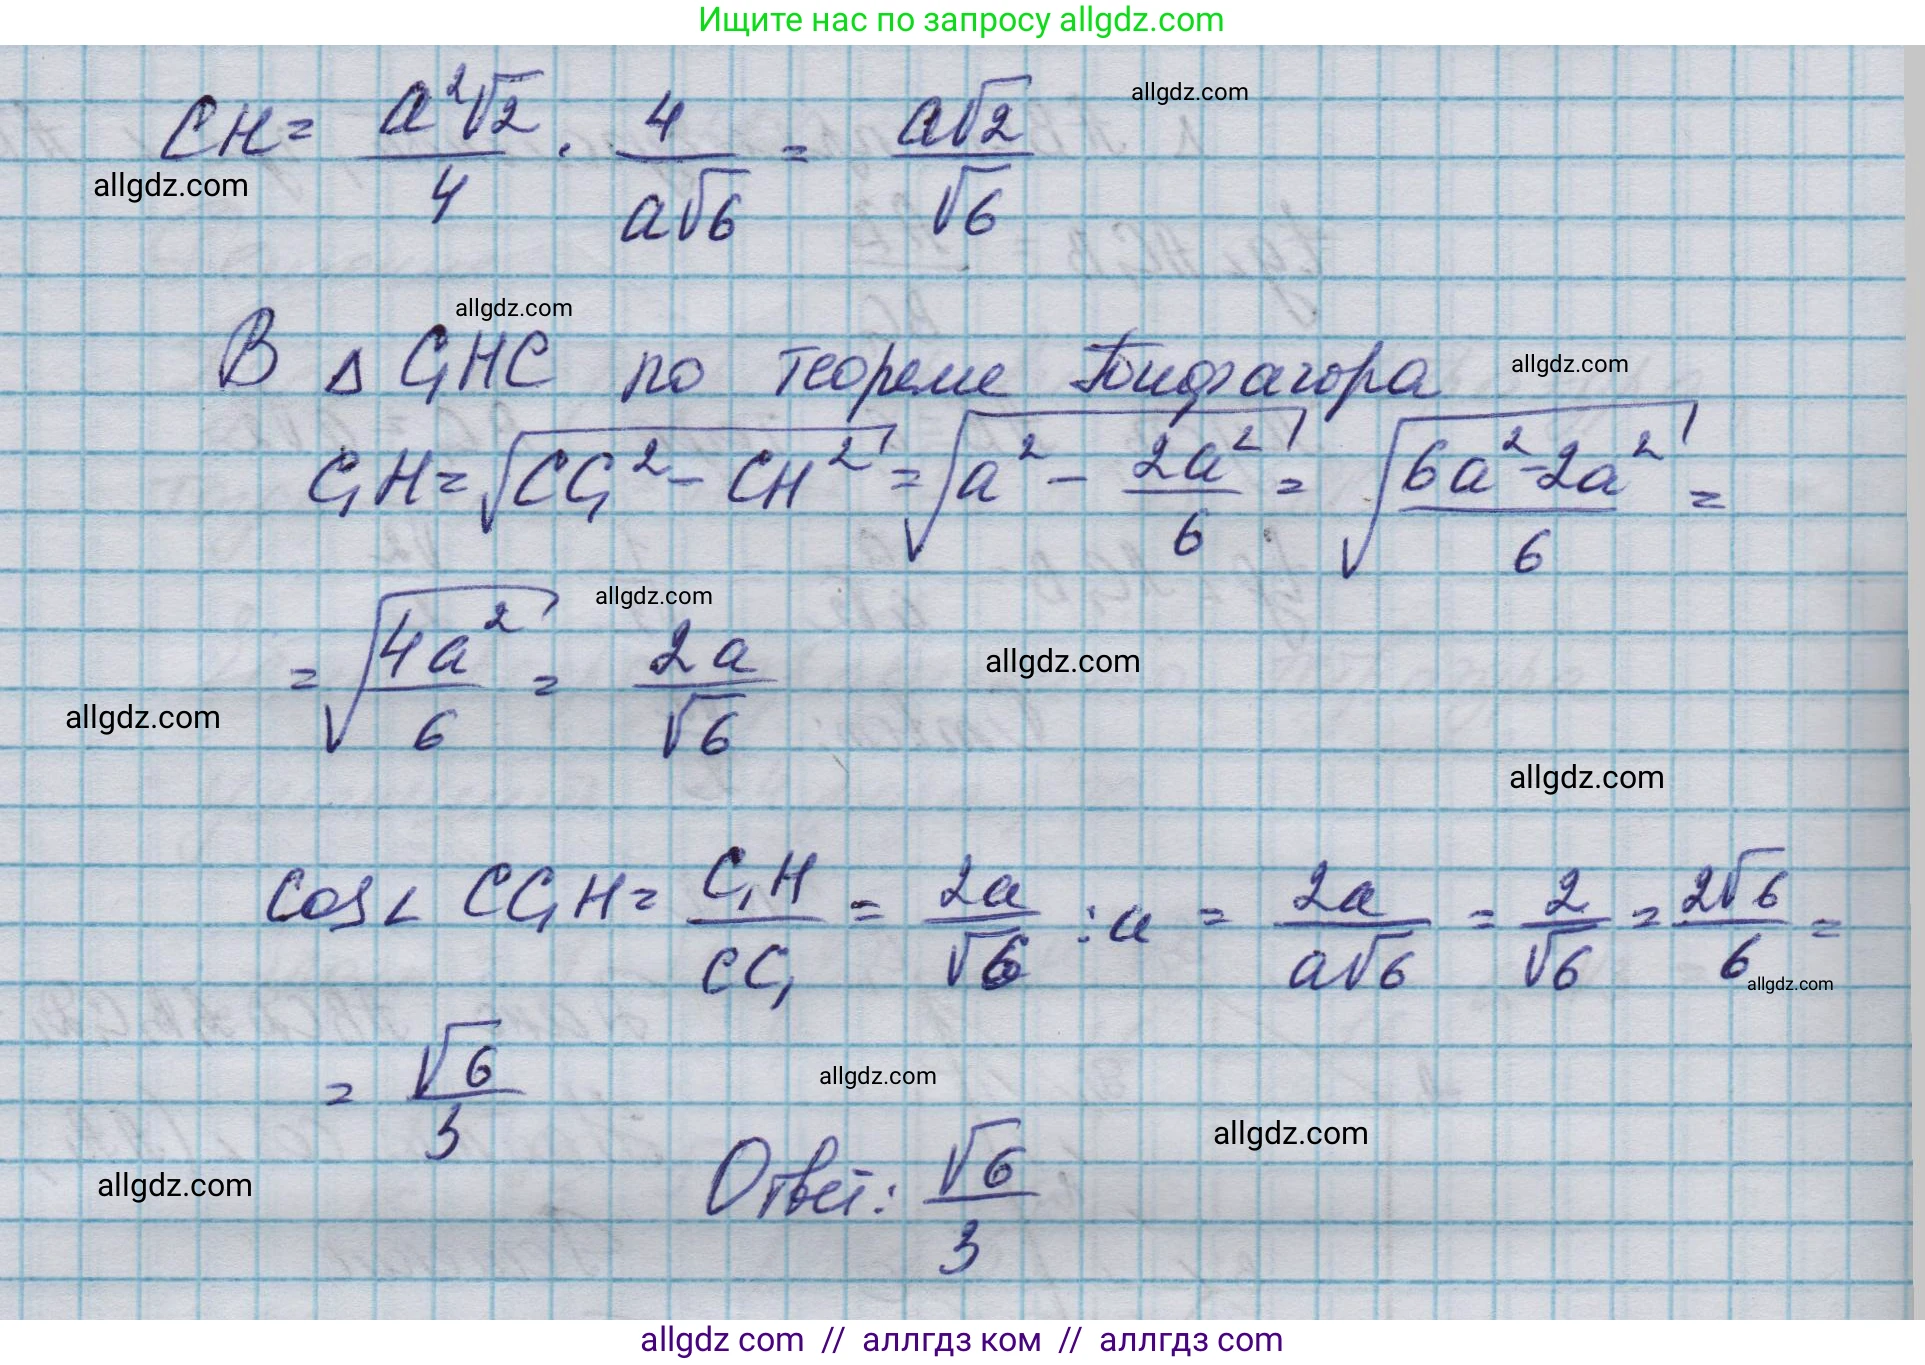 Ищите нас по запросу allgdz.com
CH = a²√2/4 · 4/a√6 = a√2/√6
allgdz.com
allgdz.com
allgdz.com
В Δ C₁HC по теореме Пифагора
allgdz.com
C₁H = √(CC₁² - CH²) = √(a² - 2a²/6) = √((6a² - 2a²)/6) =
allgdz.com
= √(4a²/6) = 2a/√6
allgdz.com
allgdz.com
allgdz.com
cos∠ CC₁H = C₁H/CC₁ = 2a/√6 : a = 2a/a√6 = 2/√6 = 2√6/6 =
allgdz.com
= √6/3
allgdz.com
allgdz.com
allgdz.com
Ответ: √6/3
allgdz com // аллгдз ком // аллгдз com